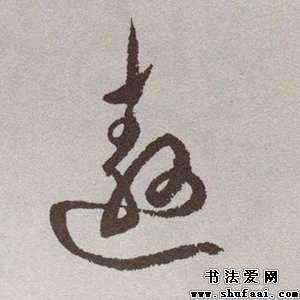 遨
书法爱网
www.shufaai.com